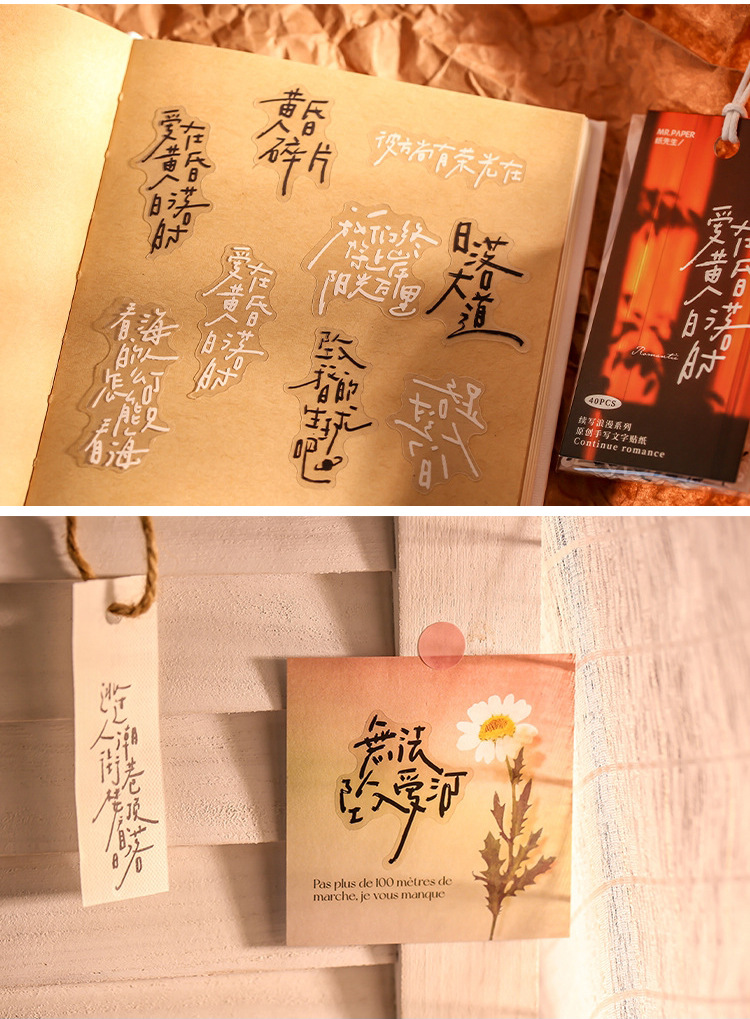 愛在
黄昏
日落
时
黄昏
碎片
彼方尚有荣光在
我们终
将上岸
阳光万里
日落
大道
愛在
黄昏
日落
时
看海
的人
怎么可
能只
看海
坠入
我的
星球
吧
MR.PAPER
纸先生/
愛在
黄昏
日落
时
Romantic
40PCS
续写浪漫系列
原创手写文字贴纸
Continue romance
逃过
人潮
街巷
楼顶
看日落
無法
坠入愛河
Pas plus de 100 mètres de
marche, je vous manque